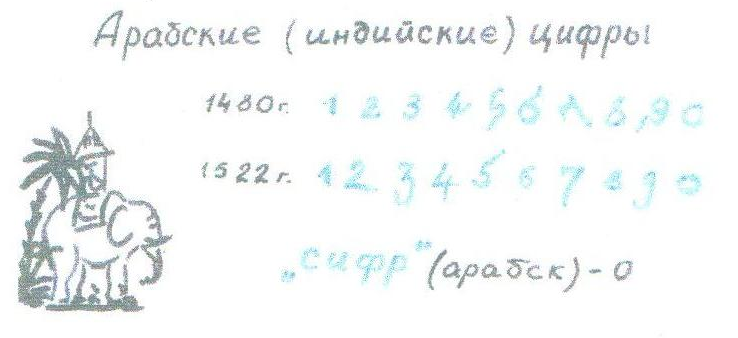 Арабские (индийские) цифры
1480г. 1 2 3 4 5 6 7 8, 9 0
1522г. 1 2 3 4 5 6 7 8 9 0
„сифр" (арабск) - 0